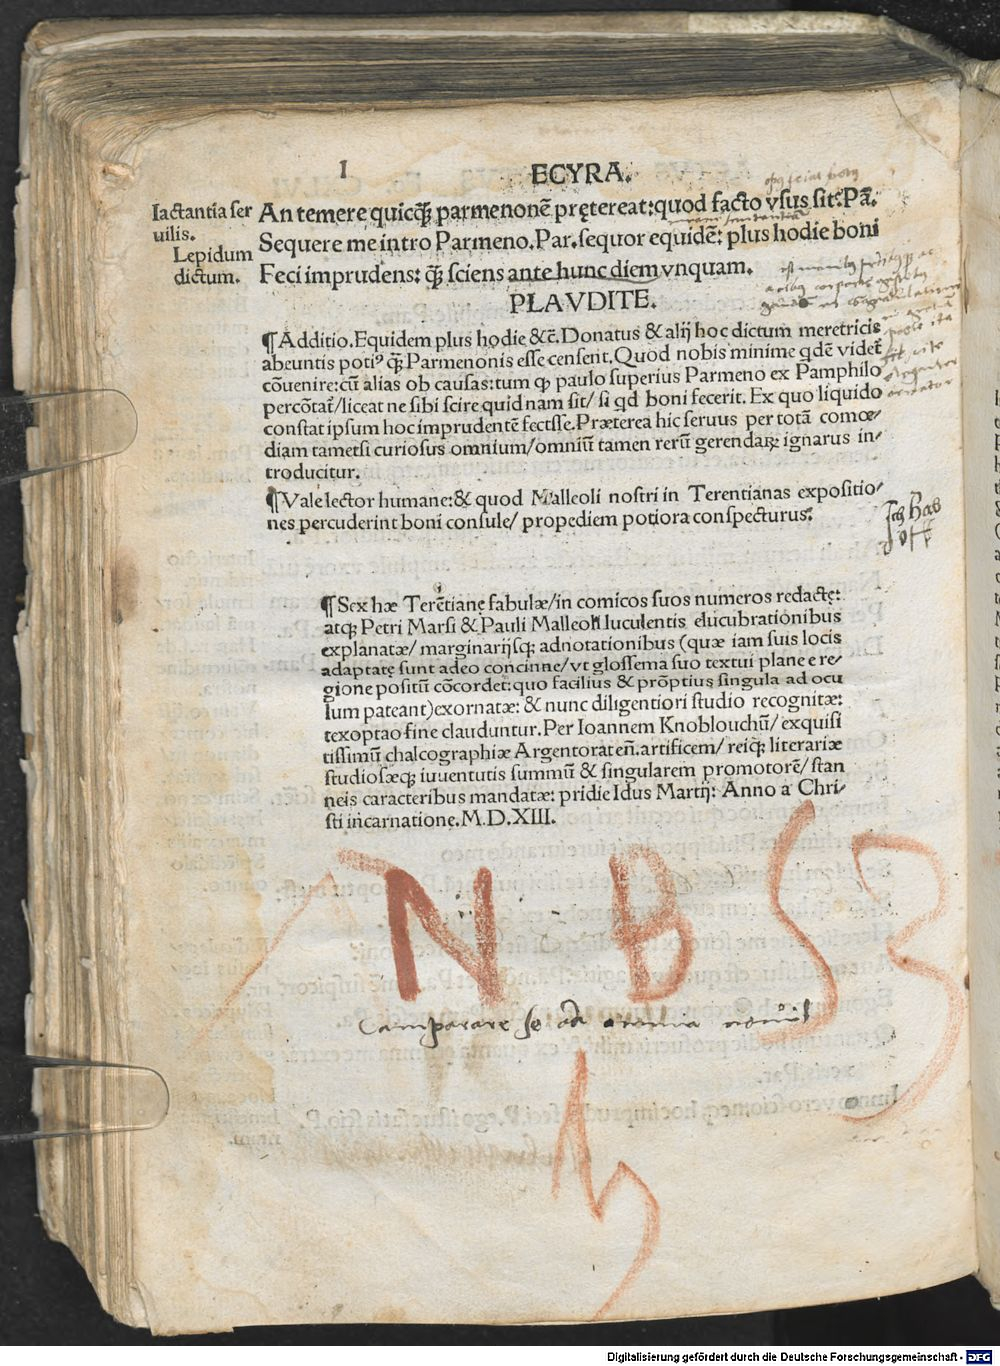 I
ECYRA.
Iactantia ser
uilis.
Lepidum
dictum.
An temere quicq̃; parmenonẽ pręтereat: quod facto vsus sit: Pã.
Sequere me intro Parmeno. Par. sequor equidẽ: plus hodie boni
Feci imprudens: q̃; sciens ante hunc diem vnquam.
PLAVDITE.
¶ Additio. Equidem plus hodie &c̃. Donatus & alij hoc dictum meretricis
abeuntis potiꝰ q̃; Parmenonis esse censent. Quod nobis minime qdẽ videt̃
cõuenire: cũ alias ob causas: tum ꝙ paulo superius Parmeno ex Pamphilo
percõtat̃/ liceat ne sibi scire quid nam sit/ si qd boni fecerit. Ex quo liquido
constat ipsum hoc imprudentẽ fecisse. Præterea hic seruus per totã comœ/
diam tametsi curiosus omnium/ omniũ tamen rerũ gerendaꝝ ignarus in/
troducitur.
¶ Vale lector humane: & quod Malleoli nostri in Terentianas expositio/
nes percuderint boni consule/ propediem potiora conspecturus.
¶ Sex hæ Terẽtianę fabulæ/ in comicos suos numeros redactę:
atq; Petri Marsi & Pauli Malleoli luculentis elucubrationibus
explanatæ/ marginarijsq; adnotationibus (quæ iam suis locis
adaptatę sunt adeo concinne/ vt glossema suo textui plane e re/
gione positũ cõcordet: quo facilius & prõptius singula ad ocu
lum pateant) exornatæ: & nunc diligentiori studio recognitæ:
texoptao fine clauduntur. Per Ioannem Knoblouchũ/ exquisi
tissimũ chalcographiæ Argentorateñ. artificem/ reiq; literariæ
studiosæq; iuuentutis summũ & singularem promotorẽ/ stan
neis caracteribus mandatæ: pridie Idus Martij: Anno a Chri/
sti incarnatione. M.D.XIII.
N B
Comparare se ad omnia
Digitalisierung gefördert durch die Deutsche Forschungsgemeinschaft - DFG